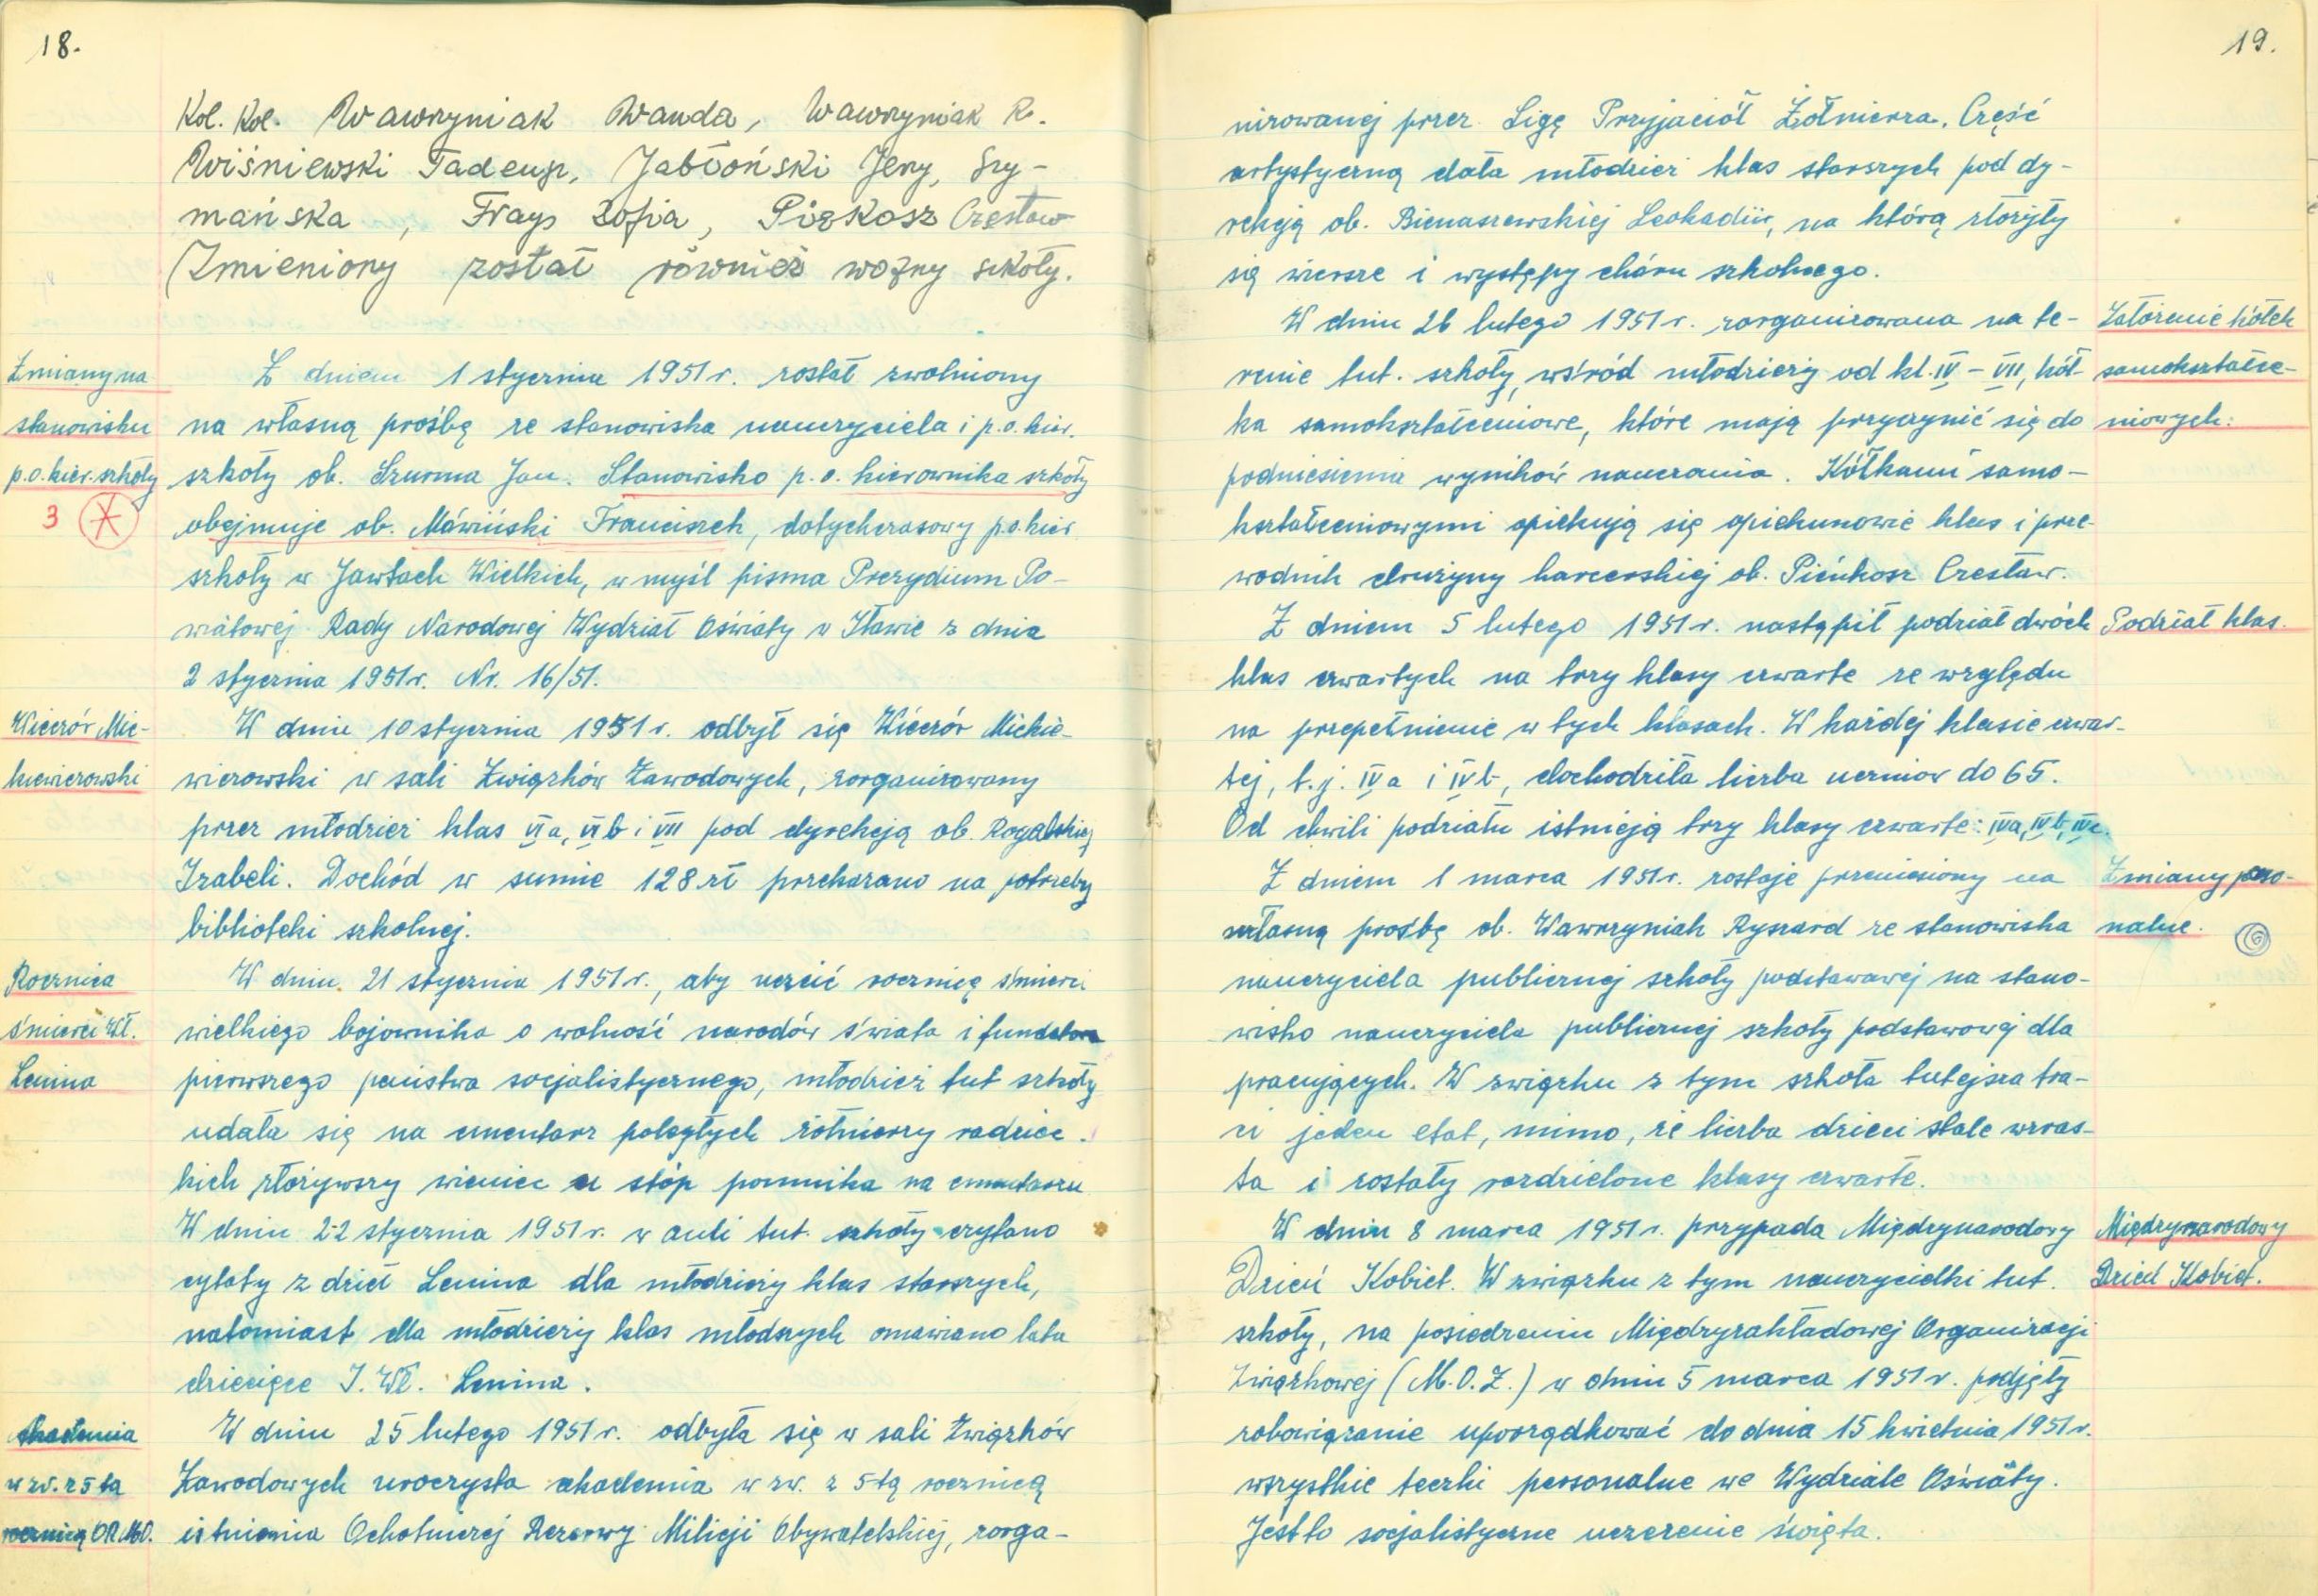 18.
Kol. Kol. Wawrzyniak Wanda, Wawrzyniak R.
Wiśniewski Tadeusz, Jabłoński Jerzy, Szy-
mańska, Frays Zofia, Piękosz Czesław
Zmieniony został również woźny szkoły.
Zmiany na
stanowisku
p.o. kier. szkoły
3
Z dniem 1 stycznia 1951 r. został zwolniony
na własną prośbę ze stanowiska nauczyciela i p.o. kier.
szkoły ob. Szurma Jan. Stanowisko p.o. kierownika szkoły
obejmuje ob. Mówiński Franciszek, dotychczasowy p.o. kier
szkoły w Jawłach Wielkich, w myśl pisma Prezydium Po-
wiatowej Rady Narodowej Wydział Oświaty w Iławie z dnia
2 stycznia 1951 r. Nr. 16/51.
Wieczór Mic-
kiewiczowski
W dniu 10 stycznia 1951 r. odbył się Wieczór Mickie-
wiczowski w sali Związków Zawodowych, zorganizowany
przez młodzież klas VI a, VI b i VII pod dyrekcją ob. Rogalskiej
Izabeli. Dochód w sumie 128 zł przekazano na potrzeby
biblioteki szkolnej.
Rocznica
śmierci Wł.
Lenina
W dniu 21 stycznia 1951 r., aby uczcić rocznicę śmierci
wielkiego bojownika o wolność narodów świata i fundatora
pierwszego państwa socjalistycznego, młodzież tut szkoły
udała się na cmentarz poległych żołnierzy radziec.
kich złożywszy wieniec u stóp pomnika na cmentarzu
W dniu 22 stycznia 1951 r. w auli tut. szkoły czytano
cytaty z dzieł Lenina dla młodzieży klas starszych,
natomiast dla młodzieży klas młodszych omawiano lata
dziecięce I. Wł. Lenina.
Akademia
w zw. z 5 tą
rocznicą ORMO.
W dniu 25 lutego 1951 r. odbyła się w sali Związków
Zawodowych uroczysta akademia w zw. z 5 tą rocznicą
istnienia Ochotniczej Rezerwy Milicji Obywatelskiej, zorga-
19.
nizowanej przez Ligę Przyjaciół Żołnierza. Część
artystyczną dała młodzież klas starszych pod dy-
rekcją ob. Bienaszewskiej Leokadii, na którą złożyły
się wiersze i występy chóru szkolnego.
Założenie kółek
samokształce-
niowych.
W dniu 26 lutego 1951 r. zorganizowana na te-
renie tut. szkoły, wśród młodzieży od kl. IV – VII, kół-
ka samokształceniowe, które mają przyczynić się do
podniesienia wyników nauczania. Kółkami samo-
kształceniowymi opiekują się opiekunowie klas i prze-
wodnik drużyny harcerskiej ob. Pieńkosz Czesław.
Podział klas.
Z dniem 5 lutego 1951 r. nastąpił podział dwóch
klas czwartych na trzy klasy czwarte ze względu
na przepełnienie w tych klasach. W każdej klasie czwar-
tej, t.j. IV a i IV b, dochodziła liczba uczniów do 65.
Od chwili podziału istnieją trzy klasy czwarte: IV a, IV b, IV c.
Zmiany perso-
nalne.
6
Z dniem 1 marca 1951 r. zostaje przeniesiony na
własną prośbę ob. Wawrzyniak Ryszard ze stanowiska
nauczyciela publicznej szkoły podstawowej na stano-
wisko nauczyciela publicznej szkoły podstawowej dla
pracujących. W związku z tym szkoła tutejsza tra-
ci jeden etat, mimo, że liczba dzieci stale wzras-
ta i zostały rozdzielone klasy czwarte.
Międzynarodowy
Dzień Kobiet.
W dniu 8 marca 1951 r. przypada Międzynarodowy
Dzień Kobiet. W związku z tym nauczycielki tut.
szkoły, na posiedzeniu Międzyzakładowej Organizacji
Związkowej (M.O.Z.) w dniu 5 marca 1951 r. podjęły
zobowiązanie uporządkować do dnia 15 kwietnia 1951 r.
wszystkie teczki personalne we Wydziale Oświaty.
Jest to socjalistyczne uczczenie święta.